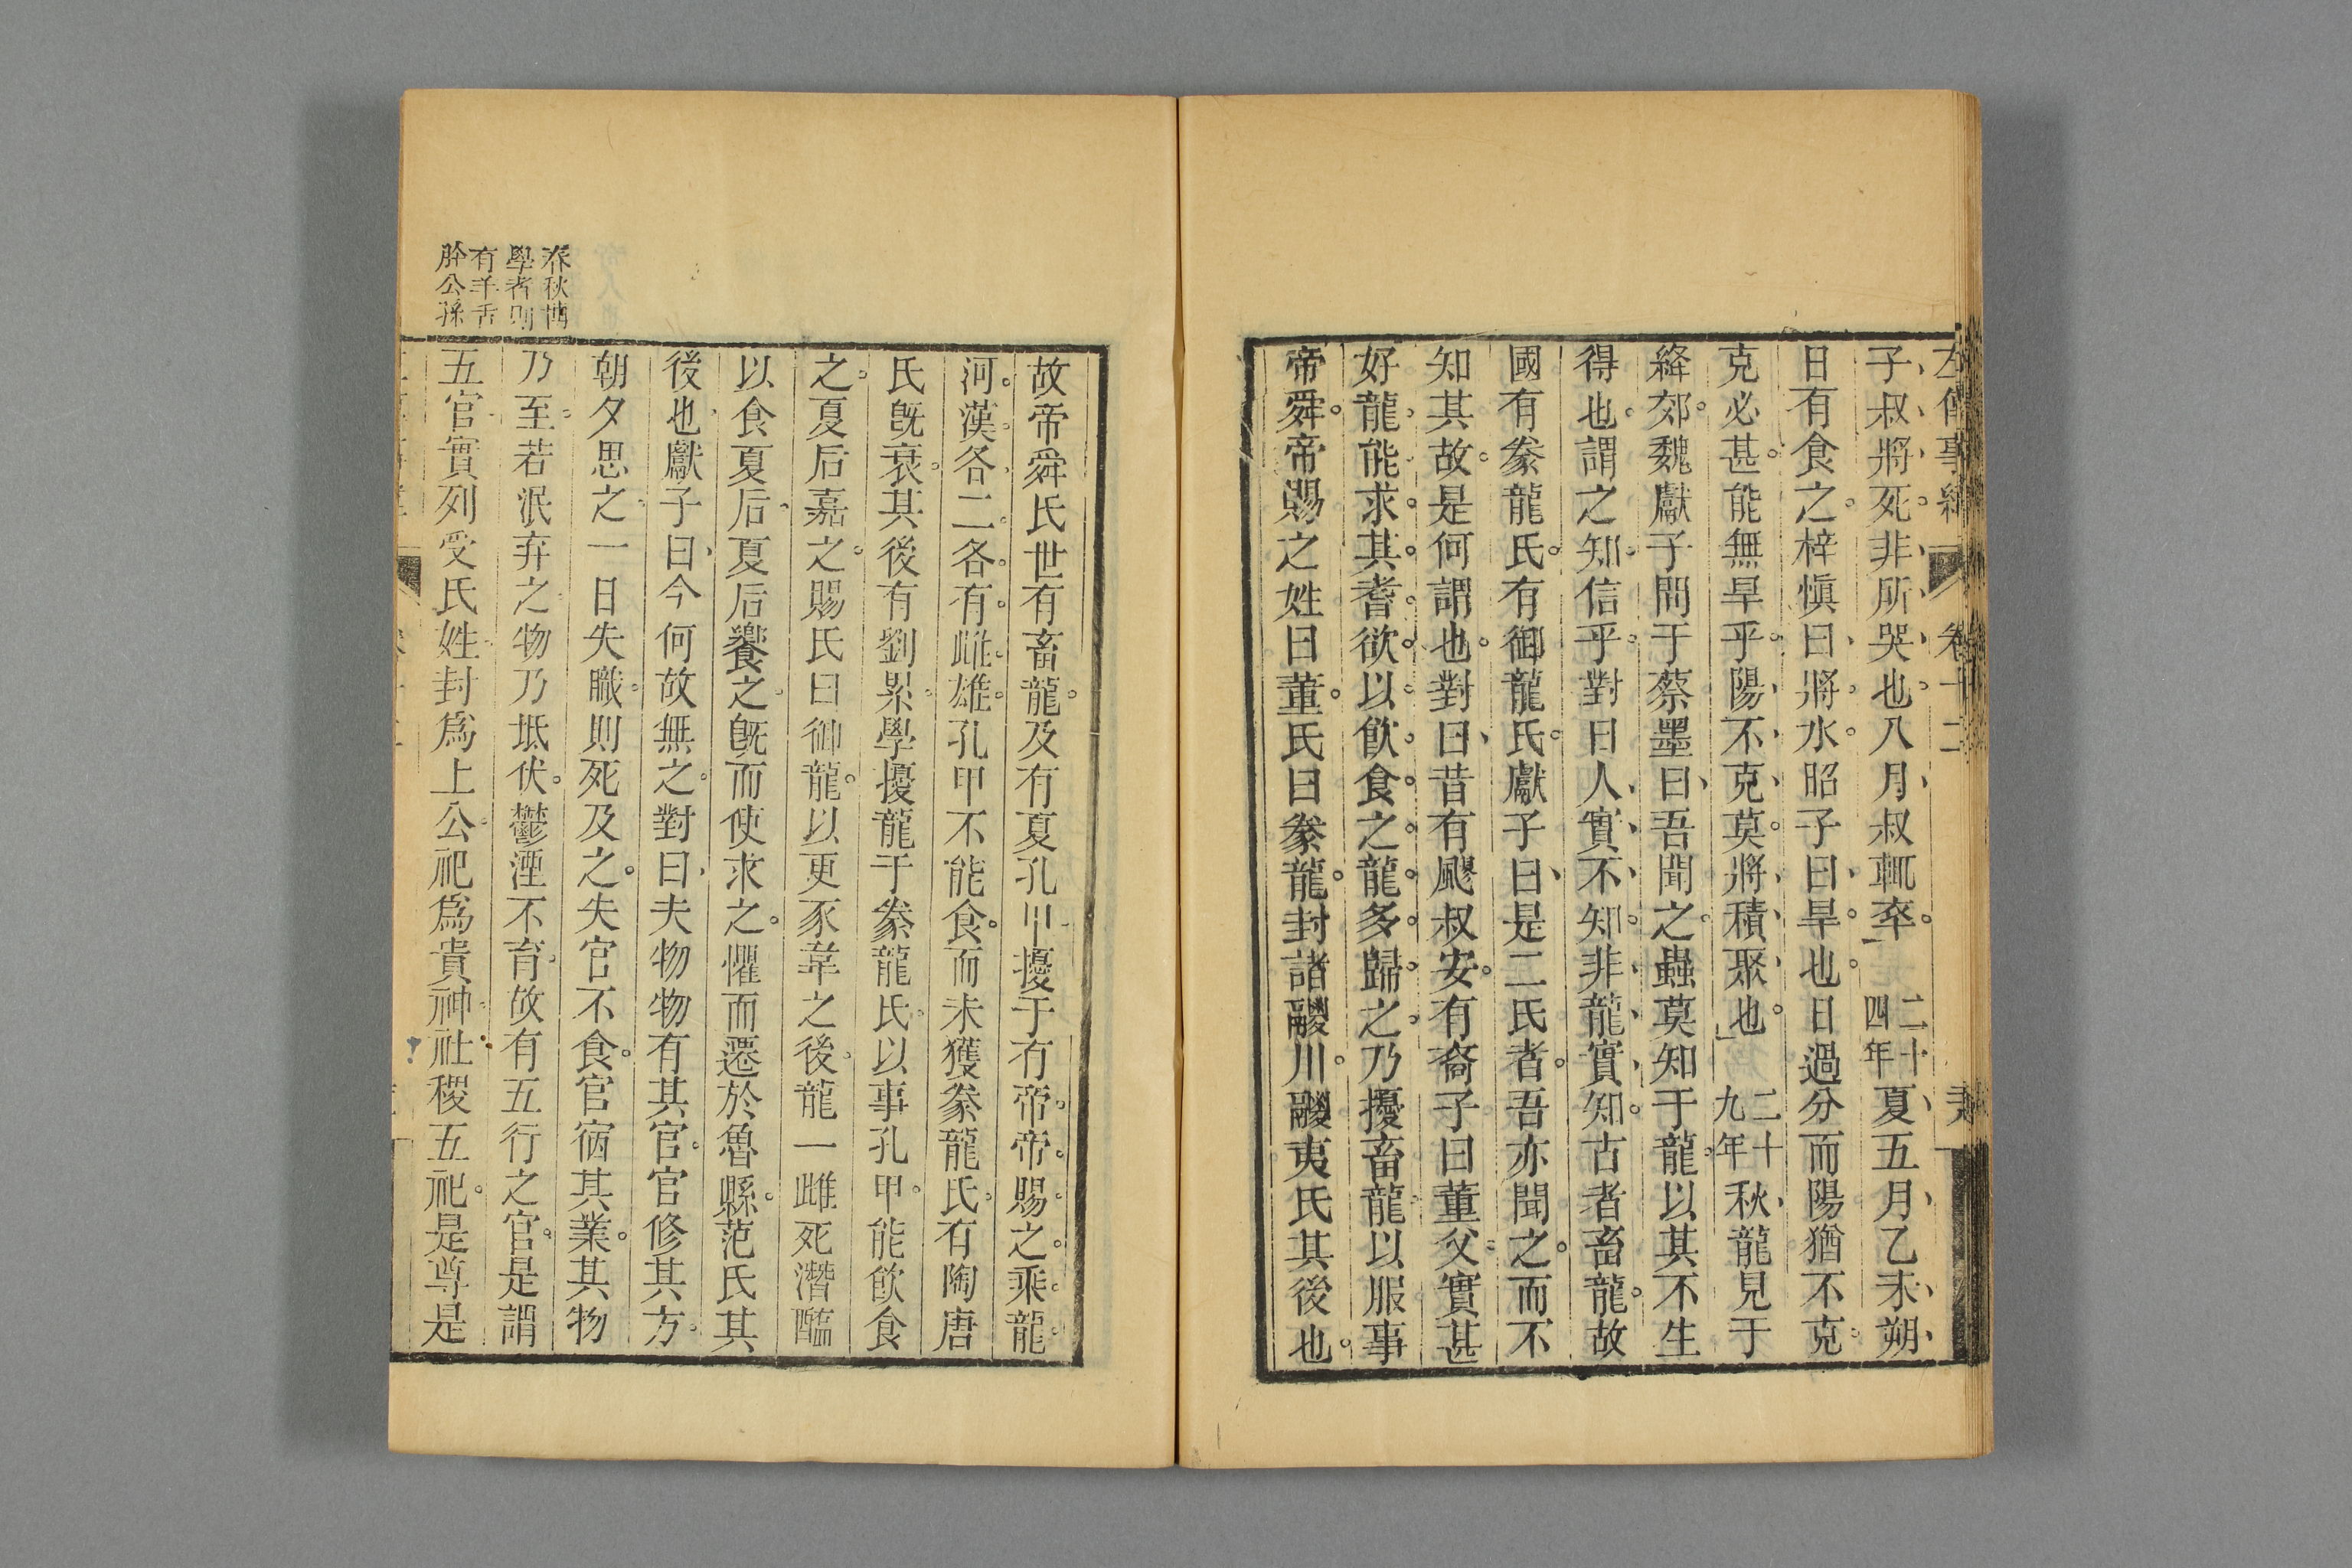 左傳事緯 卷十二
子叔將死非所哭也八月叔輒卒 二十四年 夏五月乙未朔
日有食之梓愼曰將水昭子曰旱也日過分而陽猶不克
克必甚能無旱乎陽不克莫將積聚也 二十九年 秋龍見于
絳郊魏獻子問于蔡墨曰吾聞之蟲莫知于龍以其不生
得也謂之知信乎對曰人實不知非龍實知古者畜龍故
國有豢龍氏有御龍氏獻子曰是二氏者吾亦聞之而不
知其故是何謂也對曰昔有飂叔安有裔子曰董父實甚
好龍能求其耆欲以飮食之龍多歸之乃擾畜龍以服事
帝舜帝賜之姓曰董氏曰豢龍封諸鬷川鬷夷氏其後也
故帝舜氏世有畜龍及有夏孔甲擾于有帝帝賜之乘龍
河漢各二各有雌雄孔甲不能食而未獲豢龍氏有陶唐
氏旣衰其後有劉累學擾龍于豢龍氏以事孔甲能飮食
之夏后嘉之賜氏曰御龍以更豕韋之後龍一雌死潛醢
以食夏后夏后饗之旣而使求之懼而遷於魯縣范氏其
後也獻子曰今何故無之對曰夫物物有其官官修其方
朝夕思之一日失職則死及之失官不食官宿其業其物
乃至若泯弃之物乃坻伏鬱湮不育故有五行之官是謂
五官實列受氏姓封爲上公祀爲貴神社稷五祀是尊是
春秋博
學者則
有羊舌
肸公孫